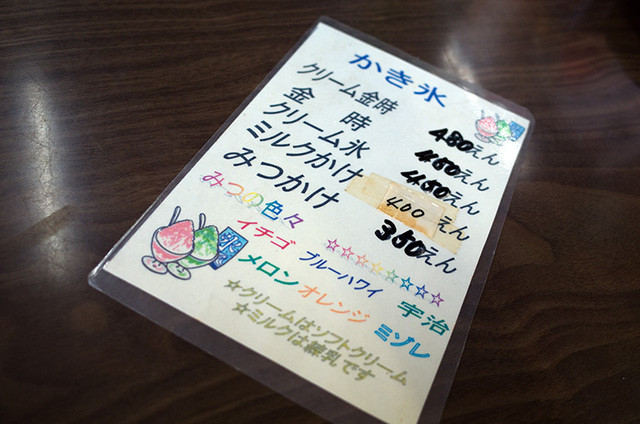 かき氷
クリーム金時 480えん
金時 450えん
クリーム氷 450えん
ミルクかけ 400えん
みつかけ 350えん
みつの色々 ☆☆☆☆☆☆☆☆
イチゴ ブルーハワイ 宇治
メロン オレンジ ミゾレ
☆クリームはソフトクリーム
☆ミルクは練乳です